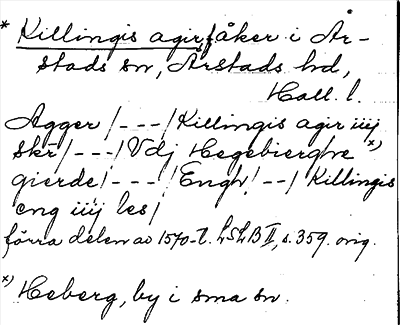 * Killingis agir, åker i År-
stads sn, Årstads hd,
Hall. l.
Agger /---/ Killingis agir iiij
skr /---/ Vdj Hegebierghe x)
gierde /---/ Engh /--/ Killingis
eng iiij les /
förra delen av 1570-t. LSLB II, s. 359. orig.
x) Heberg, by i sma sn.